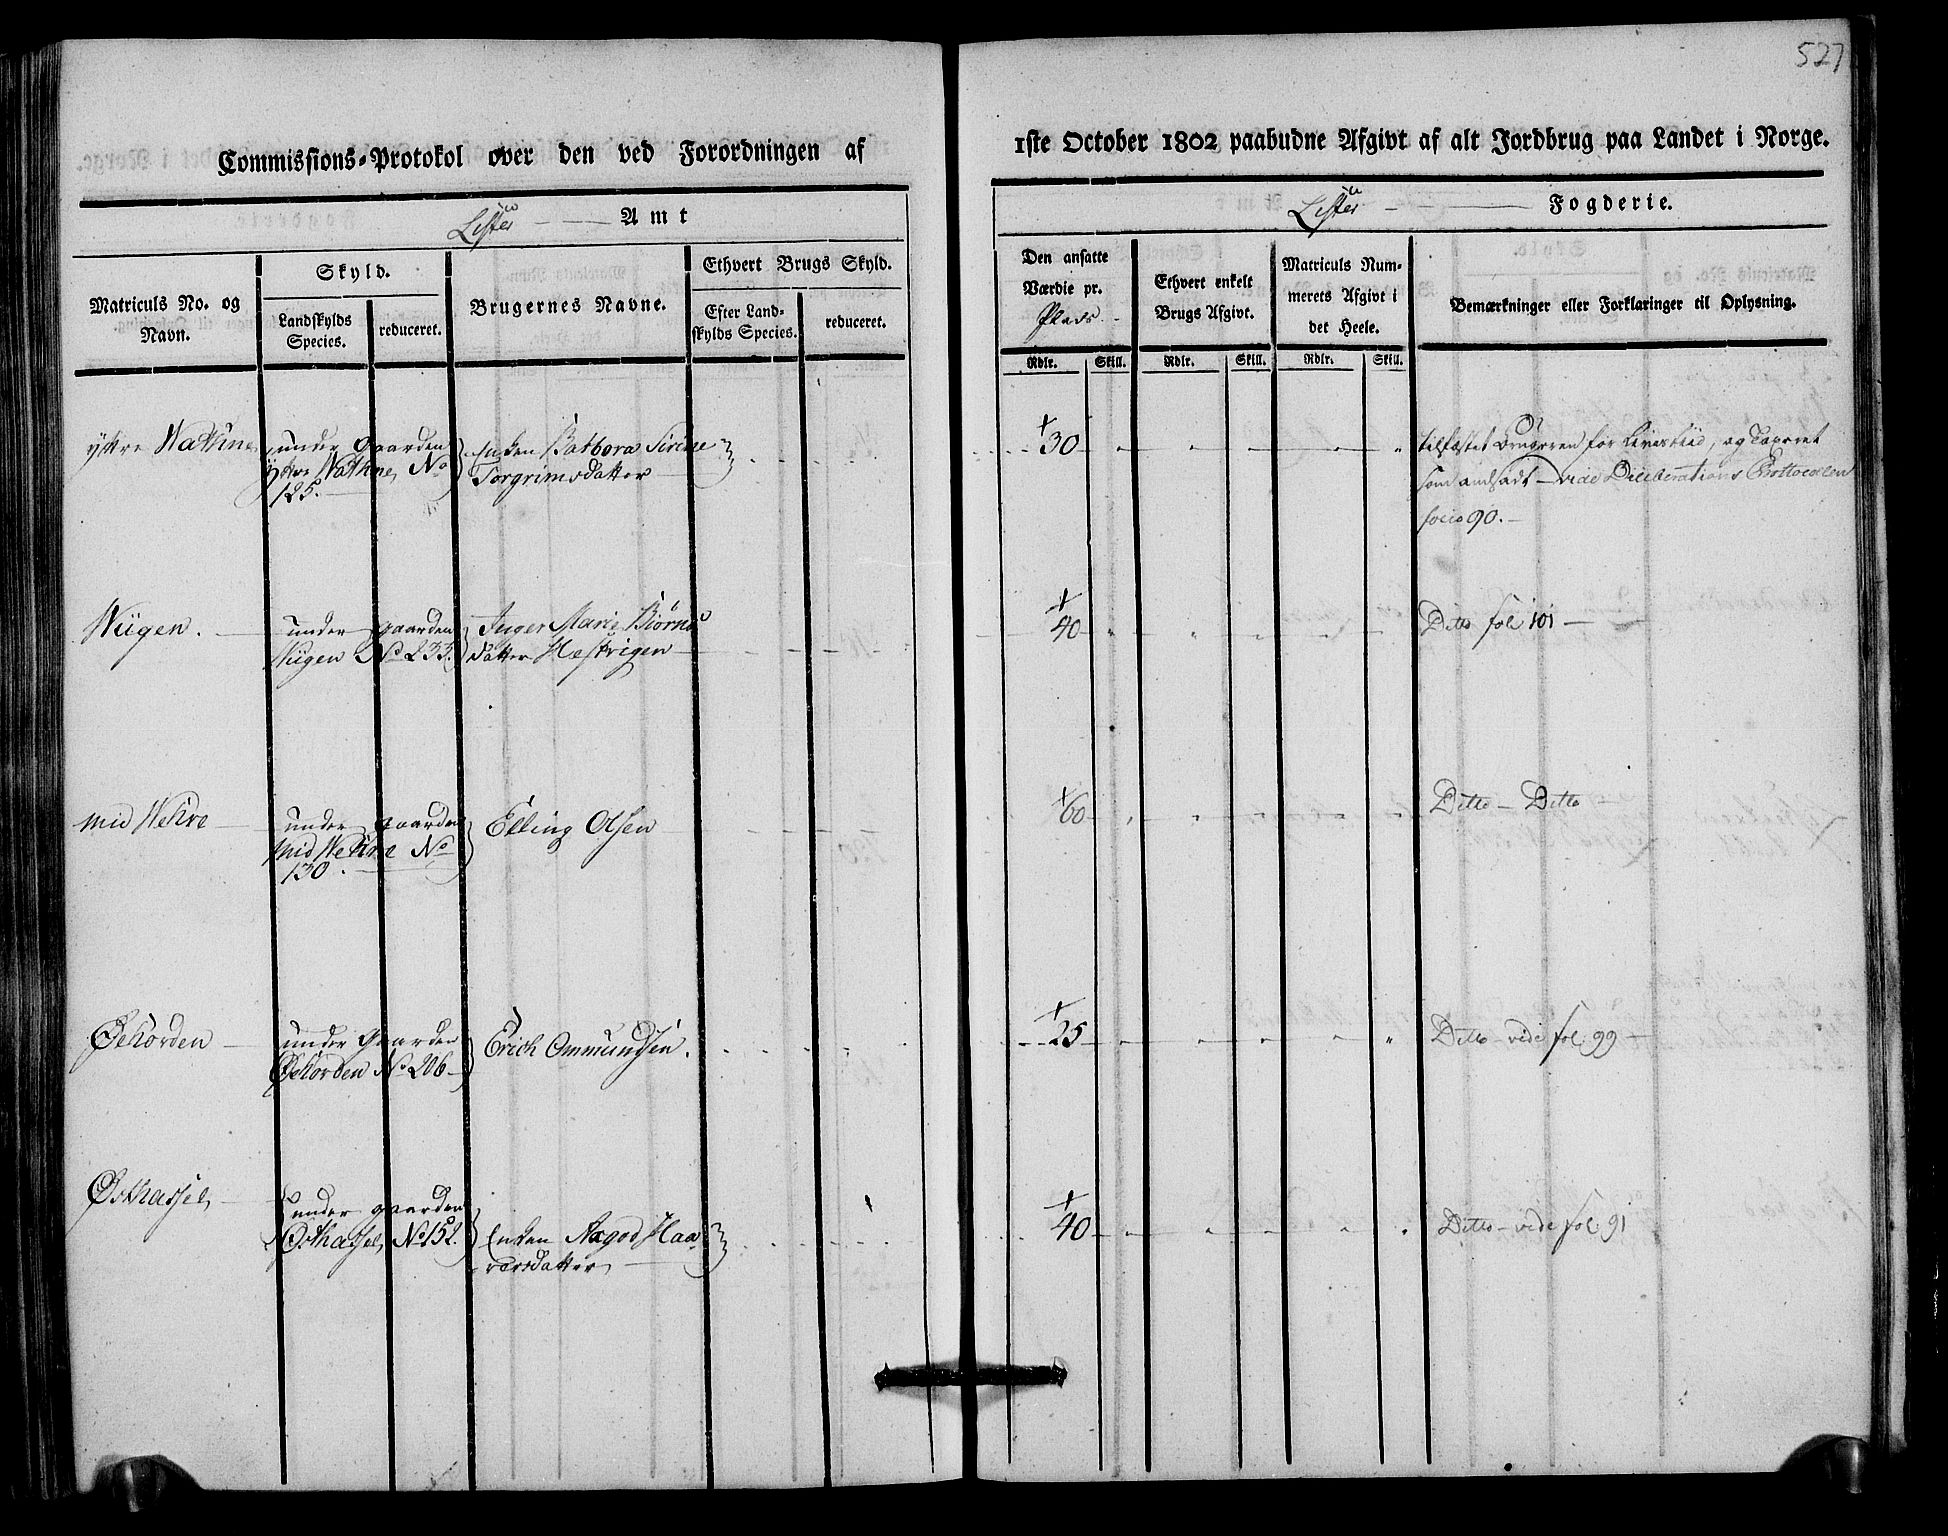 527
Commissions-Protokol over den ved Forordningen af
1ste October 1802 paabudne Afgivt af alt Jordbrug paa Landet i Norge.
Lister Amt
Lister Fogderie.
Matriculs No. og Navn.
Skyld.
Landskylds Species.
reduceret.
Brugernes Navne.
Ethvert Brugs Skyld.
Efter Land-
skylds Species.
reduceret.
Den ansatte
Værdie pr.
Plads
Ethvert enkelt
Brugs Afgivt.
Matriculs Num-
merets Afgivt i
det Heele.
Bemærkninger eller Forklaringer til Oplysning.
Rdlr. Skill. Rdlr. Skill. Rdlr. Skill.
yttre Nathne
under Gaarden
Yttre Nathne No
125.
Enken Barbora Sirine
Torgrimsdatter
30
tilfæstet Brugeren for Livestiid, og Taxeret
som andsadt - vide Deliberations Prottocolen
folio 90.
Niigen.
under gaarden
Niigen No 233.
Inger Marie Biørns
datter Hæstrigen
40
Ditto fol 101
mid Wehre
under gaarden
mid Wehre No
130.
Elling Olsen
60
Ditto - Ditto
Øehorden
under Gaarden
Øehorden No 206
Erich Ommundsen.
25
Ditto - vide fol. 99
Østhassel
under gaarden
Østhassel No 152.
Enken Aagod Haa-
varsdatter
40
Ditto - vide fol. 91